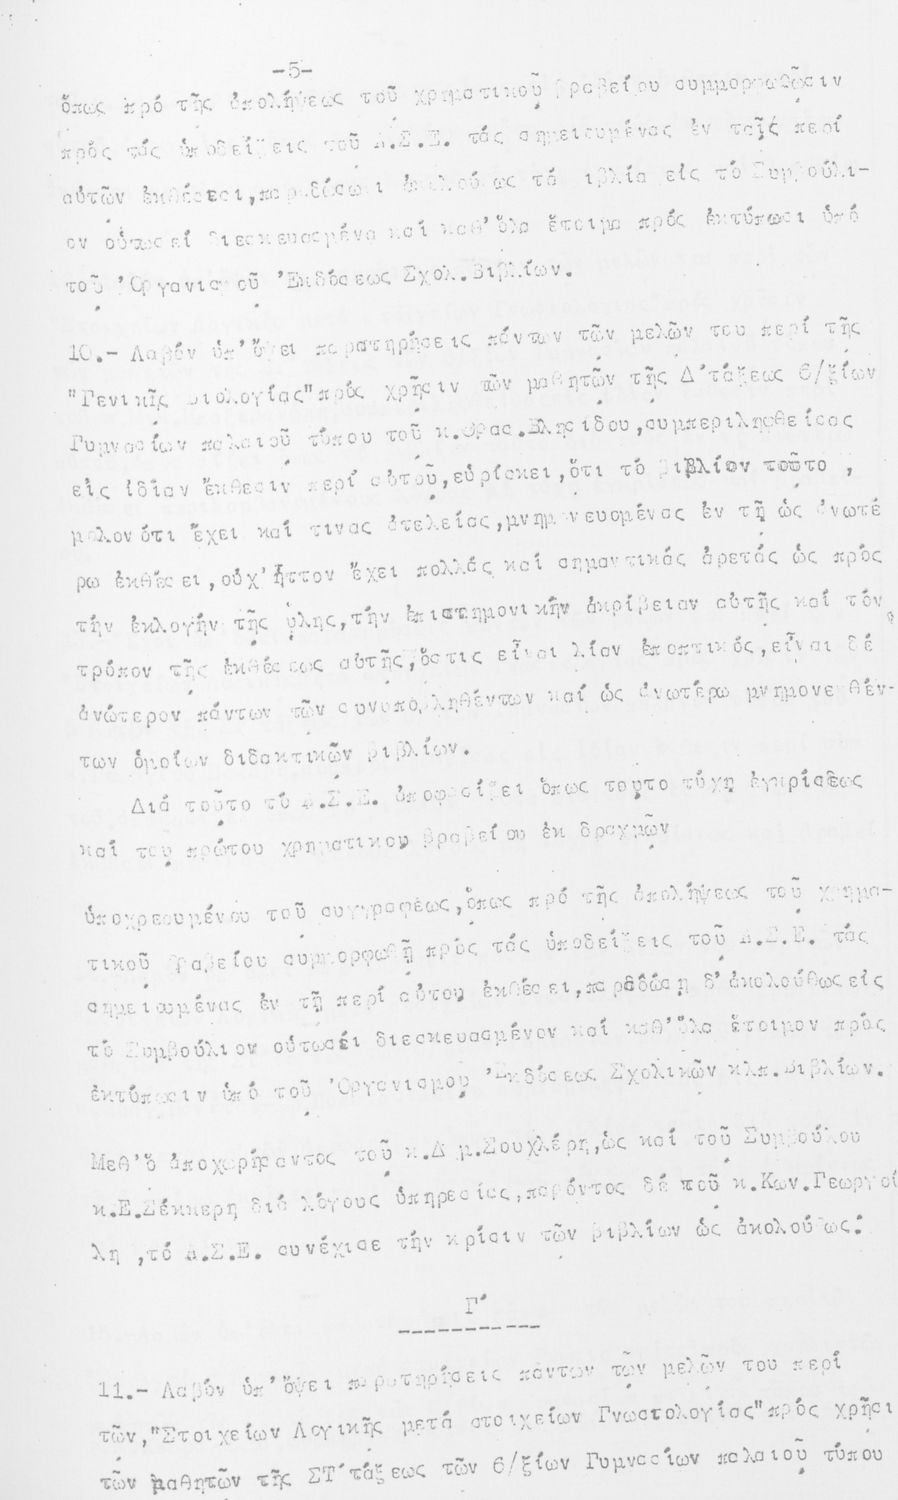 -5-
ὅπως πρό τῆς ἀπολήψεως τοῦ χρηματικοῦ βραβείου συμμορφωθῶσιν
πρός τάς ὑποδείξεις τοῦ Α.Σ.Ε. τάς σημειουμένας ἐν ταῖς περί
αὐτῶν ἐκθέσεσι, παραδώσωσι ἀκολούθως τά βιβλία εἰς τό Συμβούλι-
ον οὑτωσεί διεσκευασμένα καί καθ' ὅλα ἕτοιμα πρός ἐκτύπωσι ὑπό
τοῦ Ὀργανισμοῦ Ἐκδόσεως Σχολ. Βιβλίων.
10.- Λαβόν ὑπ' ὄψει παρατηρήσεις πάντων τῶν μελῶν του περί τῆς
"Γενικῆς Βιολογίας" πρός χρῆσιν τῶν μαθητῶν τῆς Δ' τάξεως 6/ξίων
Γυμνασίων παλαιοῦ τύπου τοῦ κ. Θρασ. Βλησίδου, συμπεριληφθείσας
εἰς ἰδίαν ἔκθεσιν περί αὐτοῦ, εὑρίσκει, ὅτι τό βιβλίον τοῦτο,
μολονότι ἔχει καί τινας ἀτελείας, μνημονευομένας ἐν τῇ ὡς ἀνωτέ
ρω ἐκθέσει, οὐχ' ἧττον ἔχει πολλάς καί σημαντικάς ἀρετάς ὡς πρός
τήν ἐκλογήν τῆς ὕλης, τήν ἐπιστημονικήν ἀκρίβειαν αὐτῆς καί τόν
τρόπον τῆς ἐκθέσεως αὐτῆς, ὅστις εἶναι λίαν ἐποπτικός, εἶναι δέ
ἀνώτερον πάντων τῶν συνυποβληθέντων καί ὡς ἀνωτέρω μνημονευθέν-
των ὁμοίων διδακτικῶν βιβλίων.
Διά τοῦτο τό Α.Σ.Ε. ἀποφασίζει ὅπως τοῦτο τύχῃ ἐγκρίσεως
καί τοῦ πρώτου χρηματικοῦ βραβείου ἐκ δραχμῶν
ὑποχρεουμένου τοῦ συγγραφέως, ὅπως πρό τῆς ἀπολήψεως τοῦ χρημα-
τικοῦ βραβείου συμμορφωθῇ πρός τάς ὑποδείξεις τοῦ Α.Σ.Ε. τάς
σημειωμένας ἐν τῇ περί αὐτοῦ ἐκθέσει, παραδώσῃ δ' ἀκολούθως εἰς
τό Συμβούλιον οὑτωσεί διεσκευασμένον καί καθ' ὅλα ἕτοιμον πρός
ἐκτύπωσιν ὑπό τοῦ Ὀργανισμοῦ Ἐκδόσεως Σχολικῶν κλπ. Βιβλίων.
Μεθ' ὅ ἀποχωρήσαντος τοῦ κ. Δημ. Σουχλέρη, ὡς καί τοῦ Συμβούλου
κ. Ε. Σέκκερη διά λόγους ὑπηρεσίας, παρόντος δέ τοῦ κ. Κων. Γεωργού
λη, τό Α.Σ.Ε. συνέχισε τήν κρίσιν τῶν βιβλίων ὡς ἀκολούθως:
Γ'
11.- Λαβόν ὑπ' ὄψει παρατηρήσεις πάντων τῶν μελῶν του περί
τῶν, "Στοιχείων Λογικῆς μετά στοιχείων Γνωστολογίας" πρός χρῆσι
τῶν μαθητῶν τῆς ΣΤ' τάξεως τῶν 6/ξίων Γυμνασίων παλαιοῦ τύπου